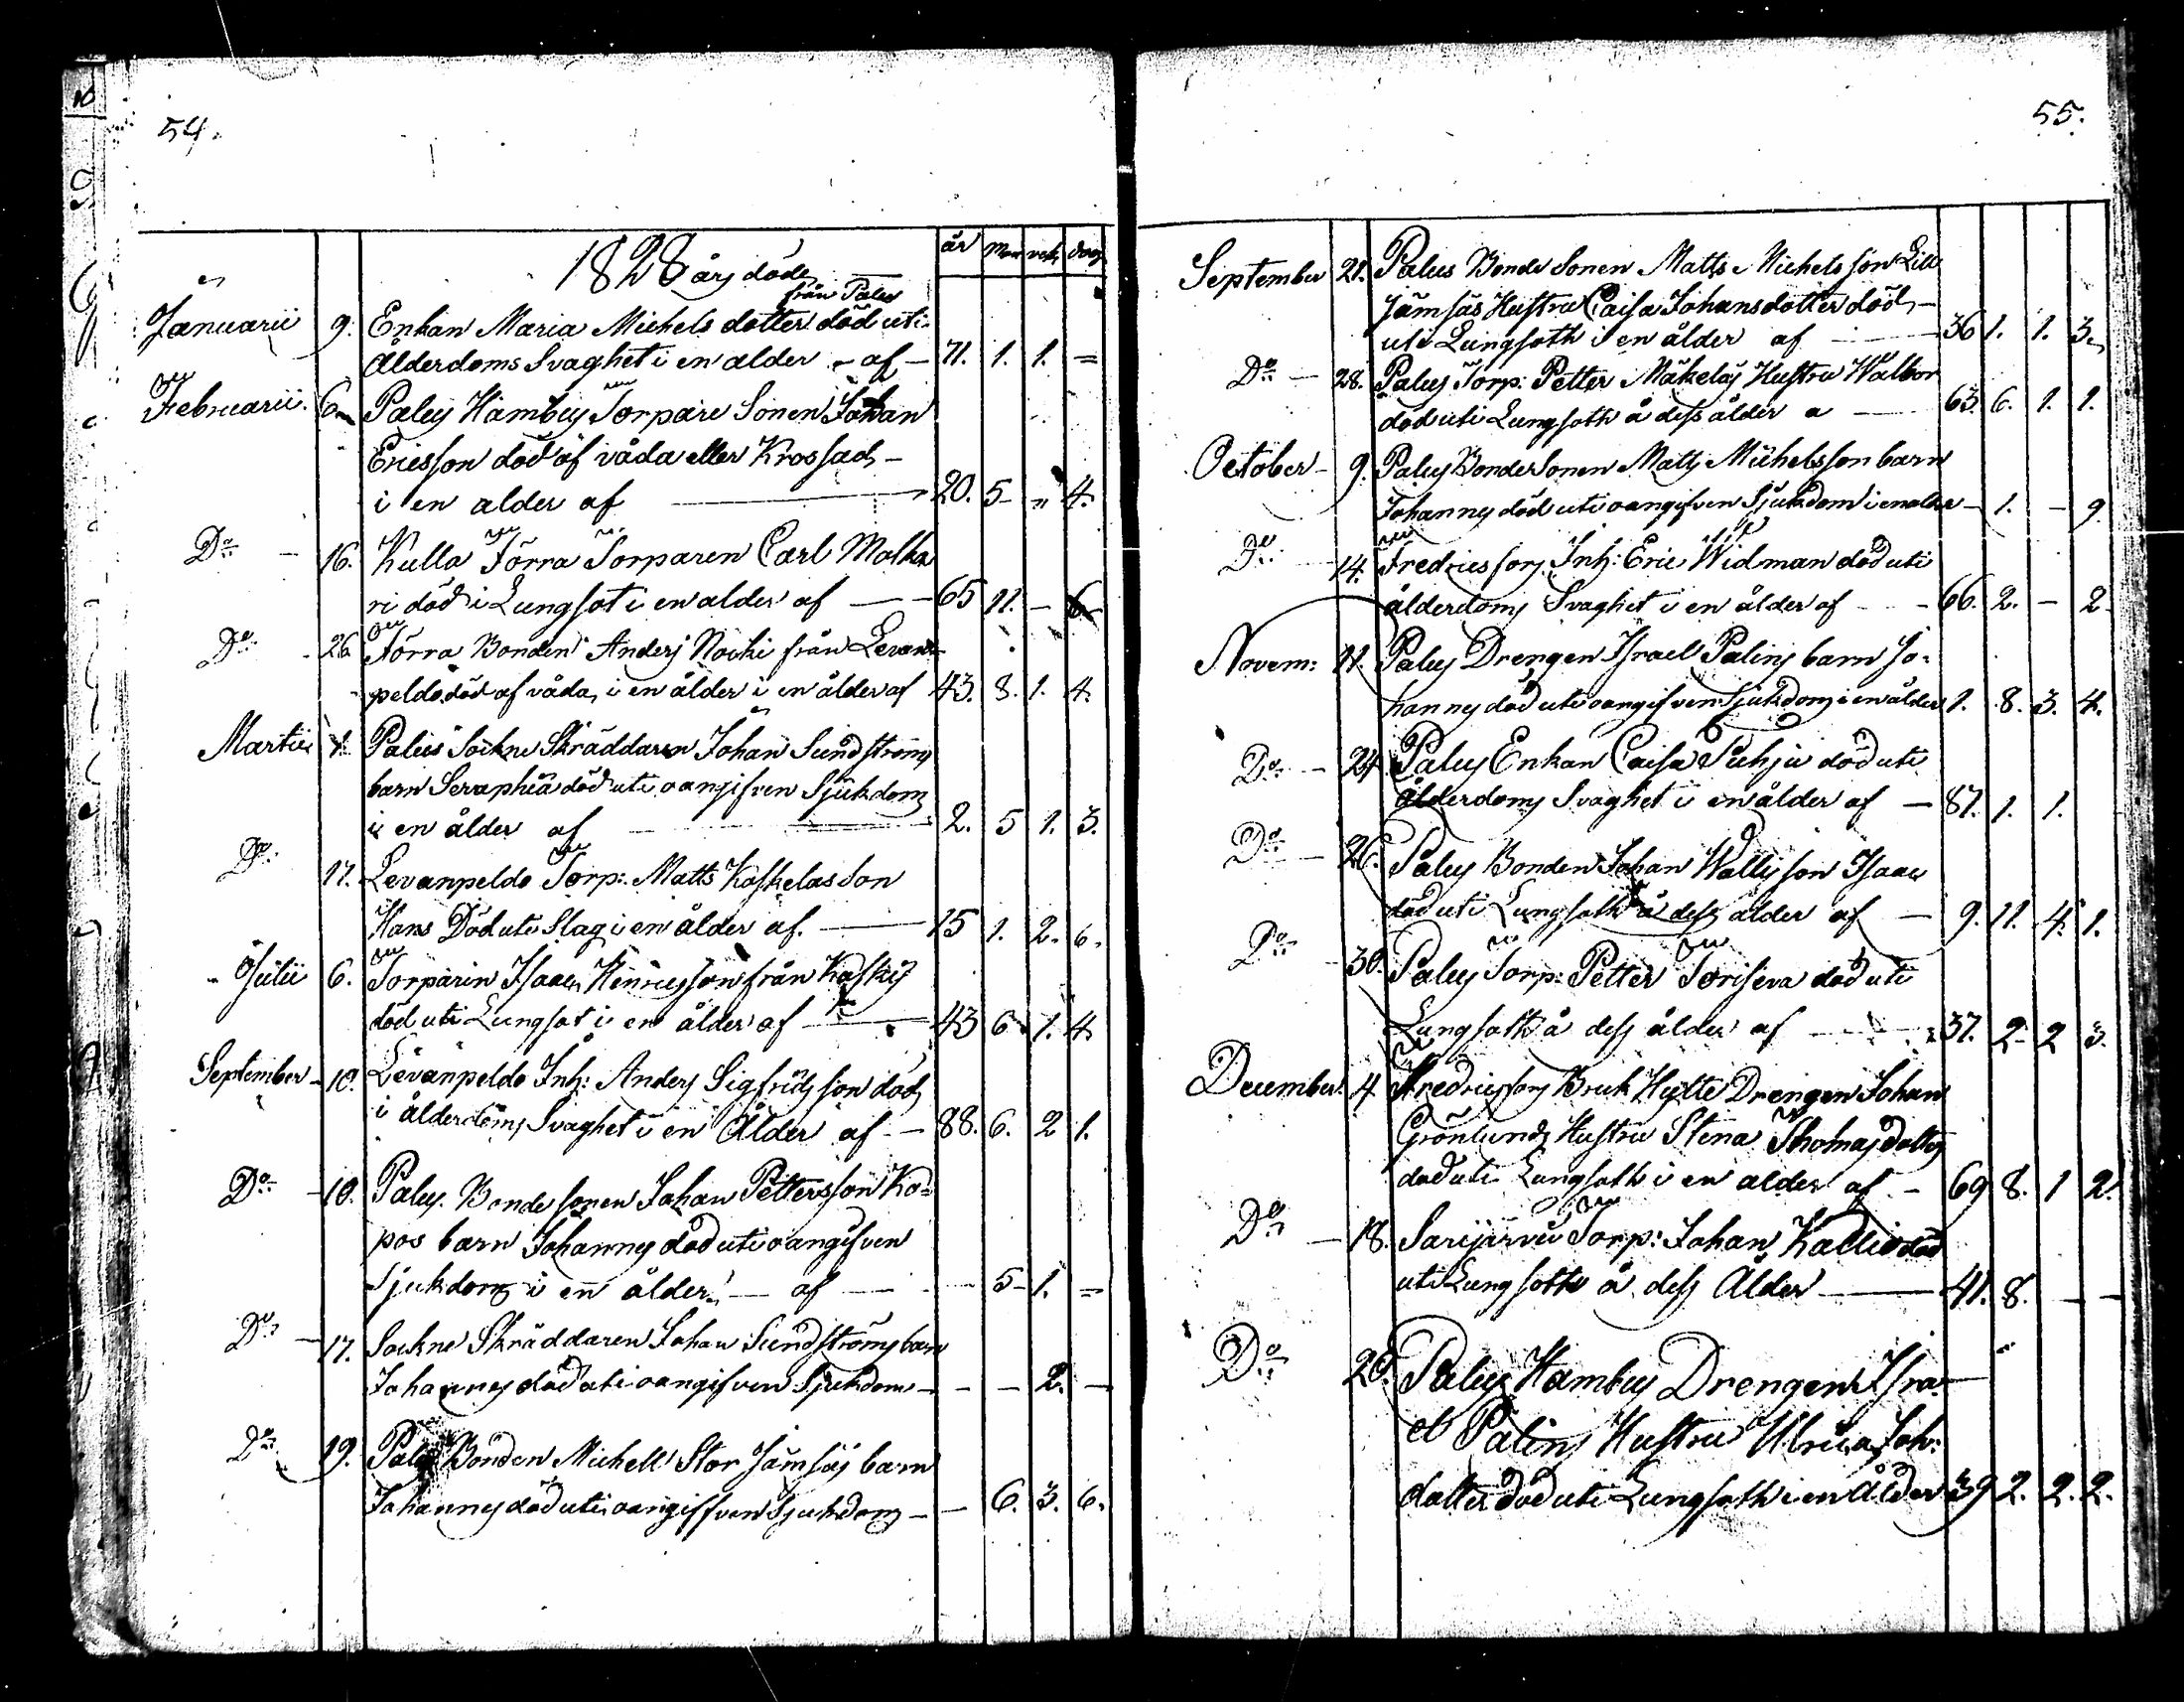 54.
1828 års döde
år Mon vek dag
från Palus
Januarii 9. Enkan Maria Michels dotter död uti
Ålderdoms Svaghet i en alder - af - 71. 1. 1. =
Februarii. 6 Palus Hambus Torpare Sonen Johan
Ericsson död af våda eller Krossad -
i en alder af 20. 5 - " 4.
Do - 16. Kulla Förra Torparen Carl Malka
ri död i Lungsot i en alder af - 65 11. - 6
Do 26 Förra Bonden Anders Nocki från Levan
peldo död af våda i en ålder i en ålder af 43. 8. 1. 4.
Martii 1. Palus Sockne Skräddaren Johan Sundströms
barn Seraphia död uti oangifven Sjukdom
i en ålder af 2. 5 1. 3.
Do 17. Levanpeldo Torp: Matts Kaskelas Son
Hans Död uti Slag i en ålder af. 15 1. 2. 6.
Julii 6. Torparen Isaac Henricsson från Koskis
död uti Lungsot i en ålder af 43 6 1. 4
September - 10. Levanpeldo Inh: Anders Sigfridsson död
i ålderdoms Svaghet i en Ålder af - 88. 6. 2 1.
Do - 10. Palus. Bonde sonen Johan Pettersson Ko-
pos barn Johannes död uti oangifven
sjukdom i en ålder - af - 5 - 1. =
Do - 17. Sockne Skräddaren Johan Sundströms barn
Johannes död uti oangifven Sjukdom - - - 2. -
Do 19. Palus Bonden Michell Stor Jämsäs barn
Johannes död uti oangifven Sjukdom - - 6. 3. 6.
55.
September 21. Palus Bonde Sonen Matts Michelsson Lill
Jämsäs Hustru Caisa Johansdotter död -
uti Lungsoth i en ålder af 36 1. 1. 3
Do - 28. Palus Torp: Petter Mäkeläs Hustru Walbor
död uti Lungsoth å dess ålder a - 63. 6. 1. 1.
October - 9. Palus Bonde Sonen Matts Michelsson barn
Johannes död uti oangifven Sjukdom i en alder - 1. - 9
Do 14. Fredricsfors Inh: Eric Widman död uti
ålderdoms Svaghet i en ålder af - 66. 2. - 2
Novem: 11. Palus Drengen Israel Palins barn Jo-
hannes död uti oangifven Sjukdom i en ålder 1. 8. 3. 4.
Do - 24 Palus Enkan Caisa Suhja död uti
Ålderdoms Svaghet i en ålder af - 87. 1. 1.
Do - 26. Palus Bonden Johan Wallis son Isaac
död uti Lungsoth å dess alder af - 9. 11. 4. 1.
Do - 30. Palus Torp: Petter Toriseva död uti
Lungsoth å dess ålder af 37. 2 - 2 3.
December. 4 Fredricsfors Bruk Hytte Drengen Johan
Grönlunds Hustru Stena Thomasdotter
död uti Lungsoth i en alder af - 69 8. 1 2.
Do - 18. Sarijervi Torp: Johan Kallio död
uti Lungsoth å dess Ålder 41. 8. - -
Do 20. Palus Hambus Drengen Isra-
el Palins Hustru Ulrica Joh:
dotter död uti Lungsoth i en Ålder 39 2. 2. 2.